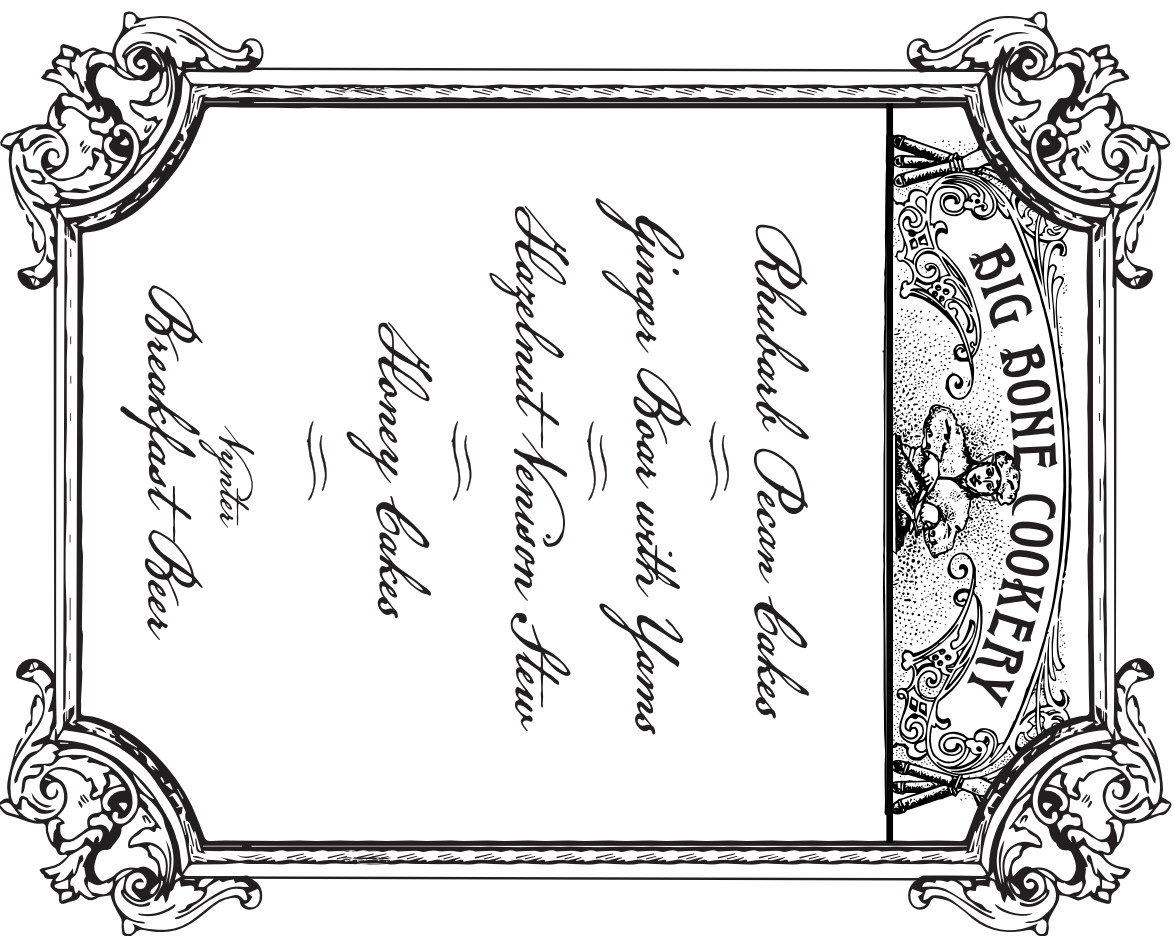 BIG BONE COOKERY
Rhubarb Pecan Cakes
Ginger Boar with Yams
Hazelnut Venison Stew
Honey Cakes
Nynter
Breakfast Beer